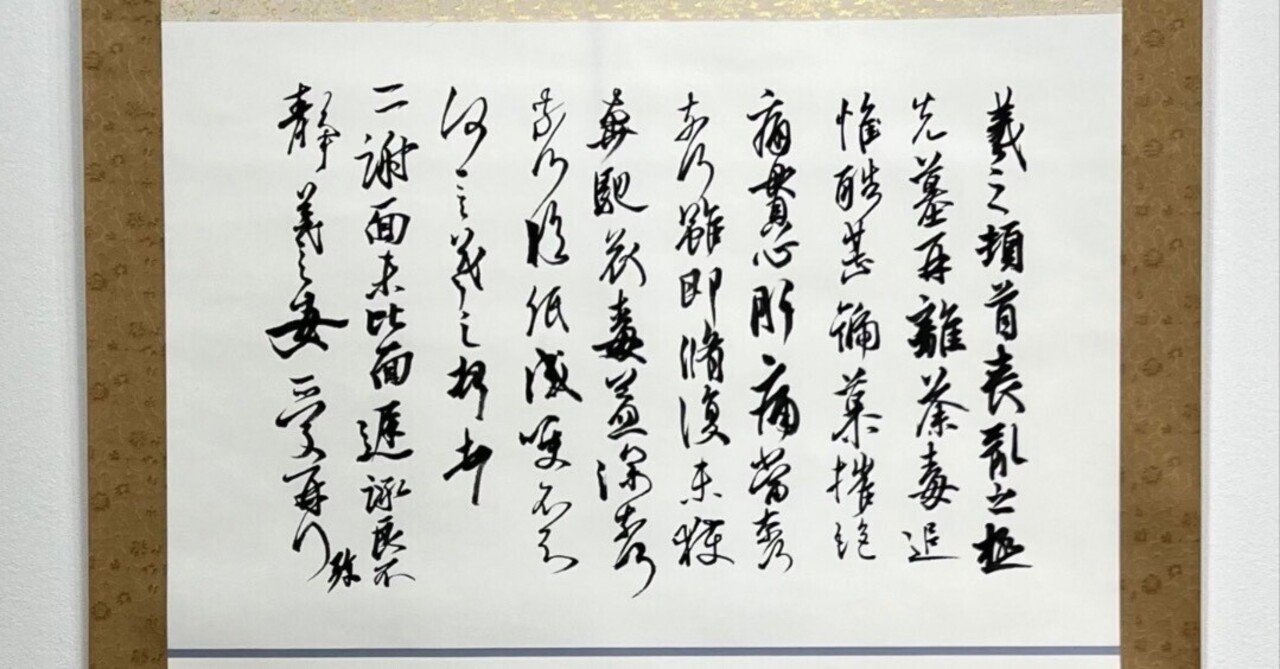 羲之頓首喪乱之極
先墓再離荼毒追
惟酷甚號慕摧絶
痛貫心肝痛當奈何
奈何雖即脩復未獲
奔馳哀毒益深奈何
奈何臨紙感哽不知
何言羲之頓首頓首
二謝面未比面遲詠良不
静羲之女愛再拜